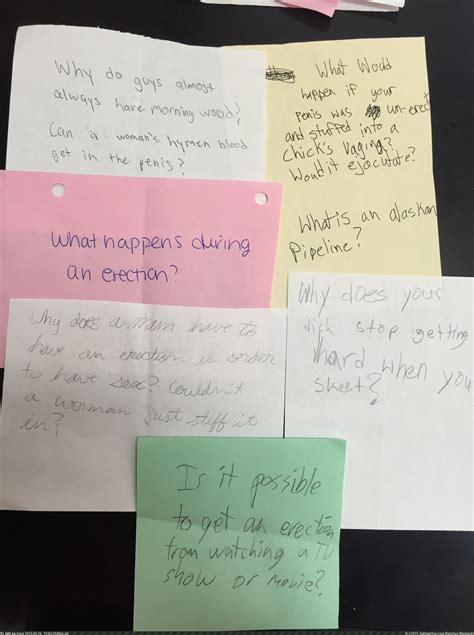 Why do guys almost
always have morning wood?
Can a woman's hymen blood
get in the penis?
What Would
happen if your
penis was un-erect
and stuffed into a
chick's vagina?
Would it ejacutate?
What is an alaskan
Pipeline?
What happens during
an erection?
Why does a man have to
have an erection in order
to have sex? Couldn't
a woman just stuff it
in?
Why does your
dick stop getting
hard when you
skeet?
Is it possible
to get an erection
from watching a TV
show or movie?